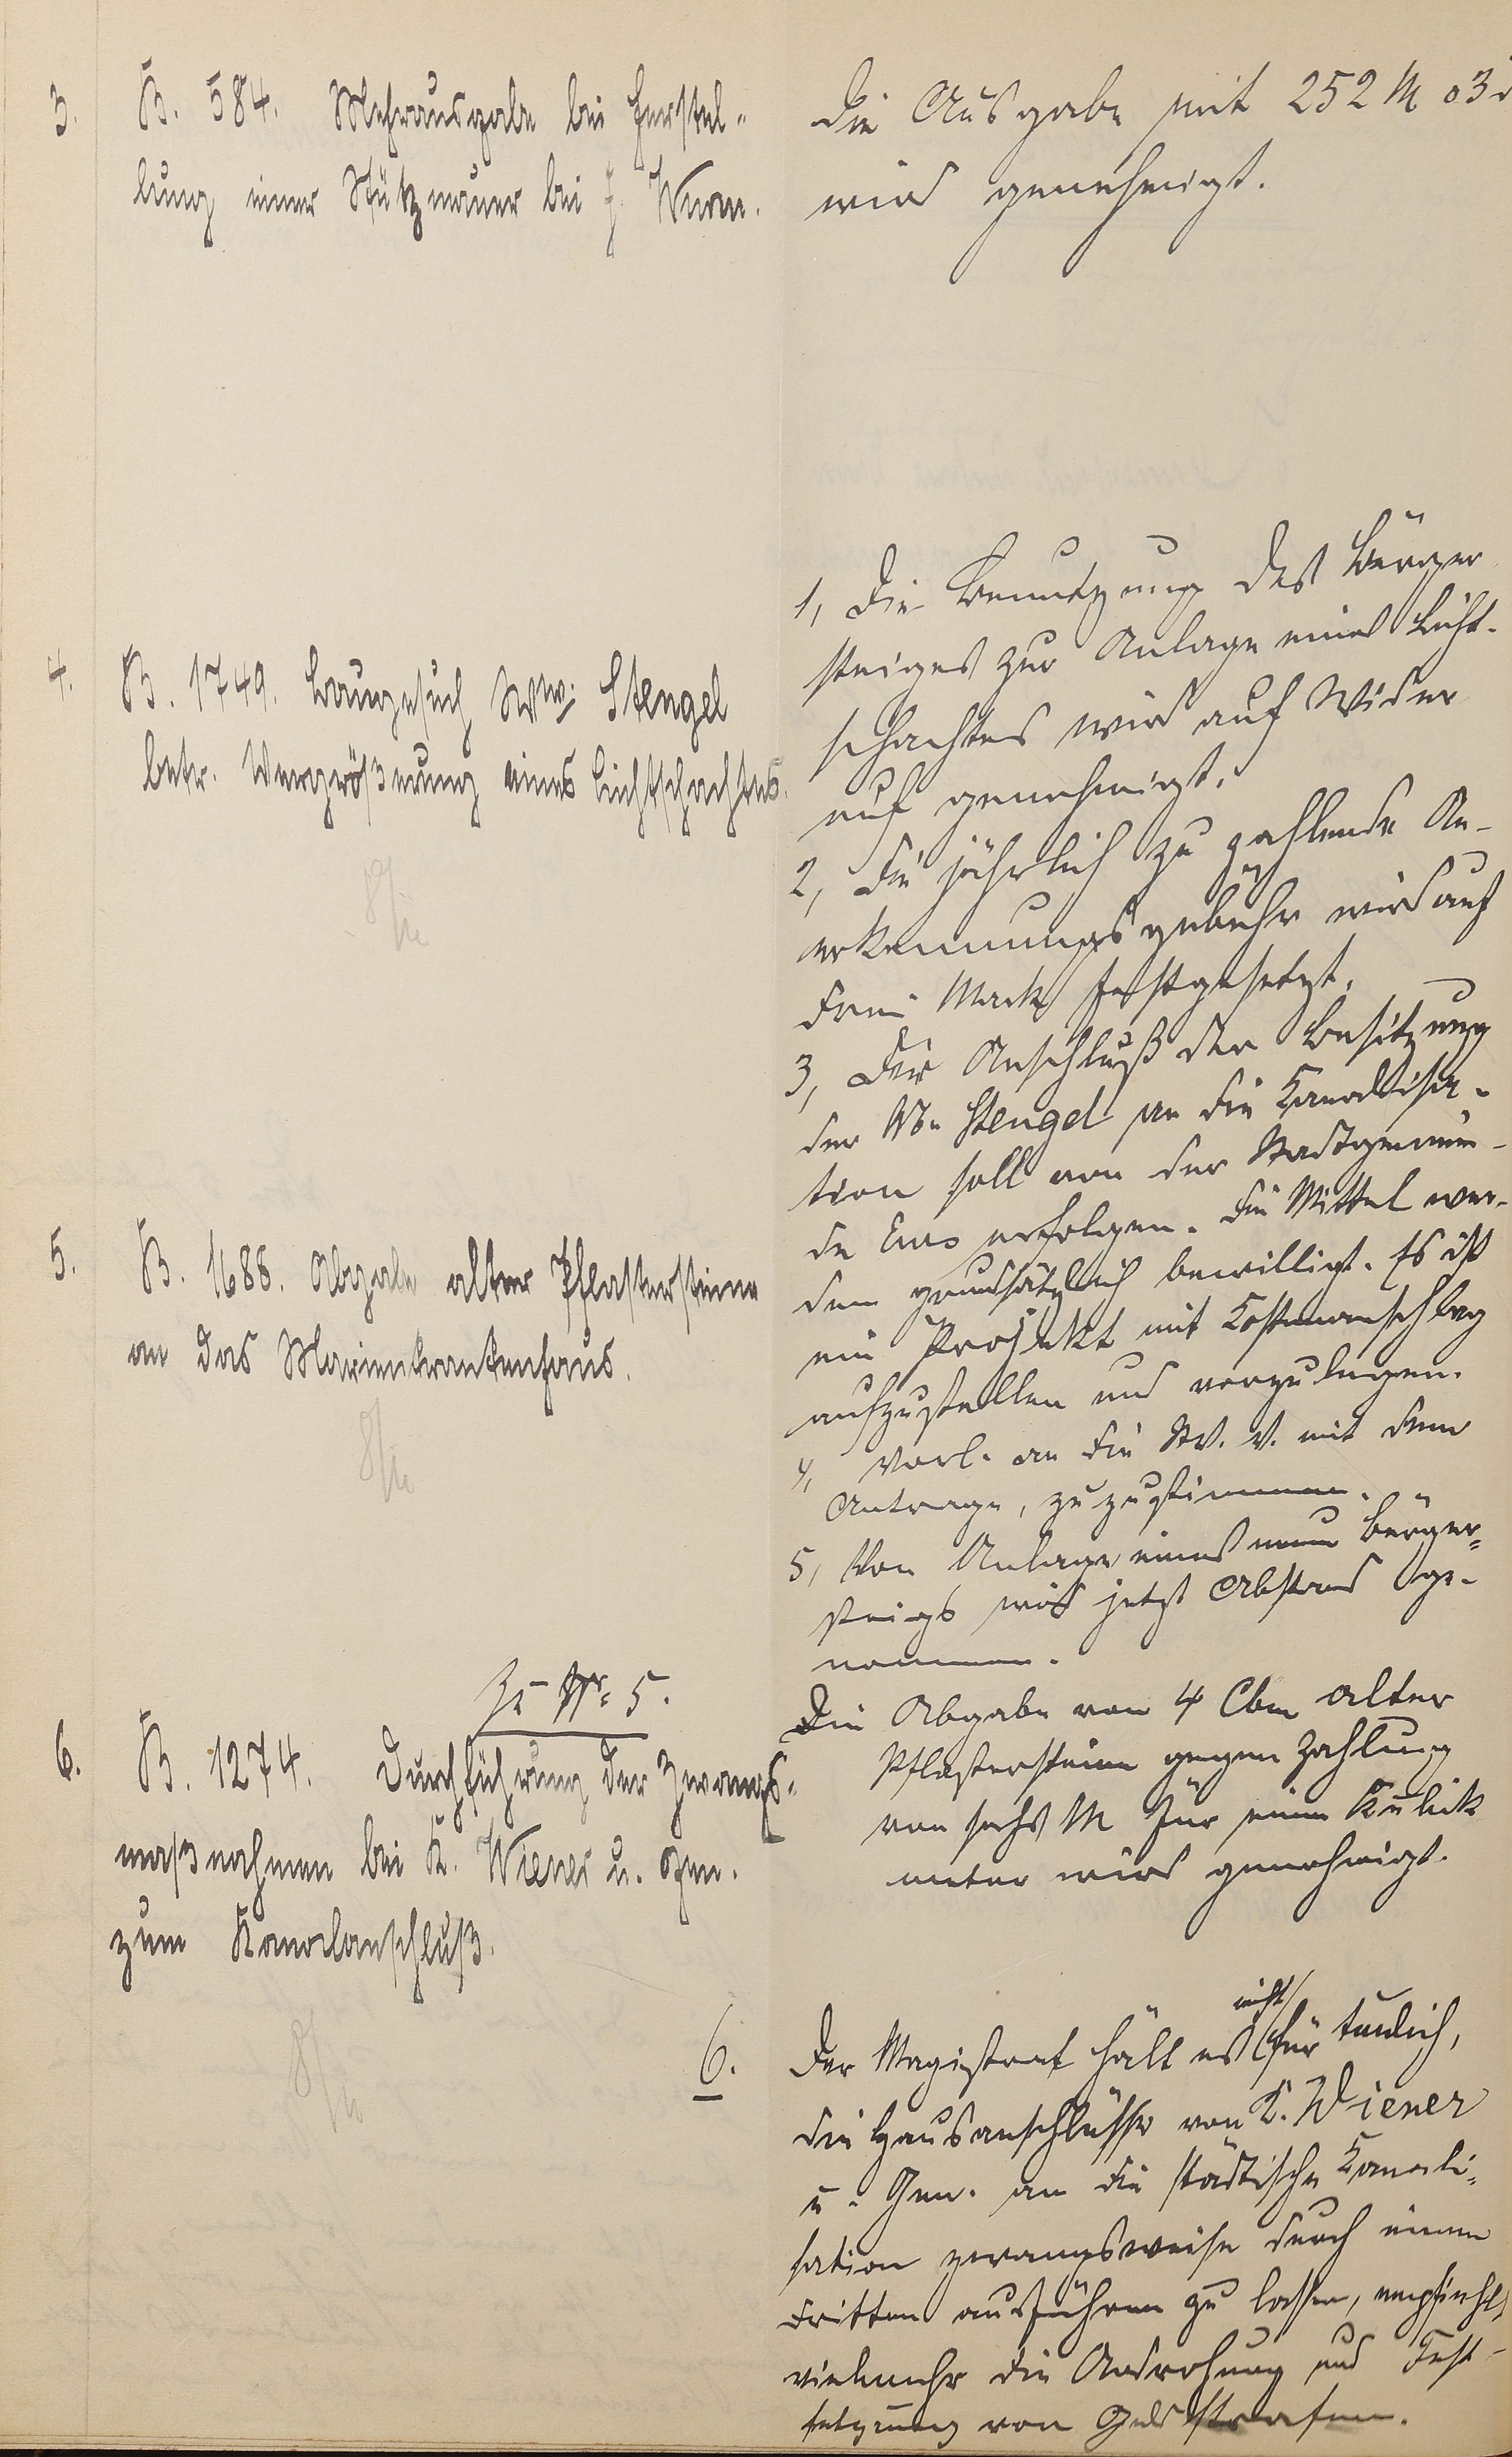 3. B. 584. Mehrausgabe bei Herstel-
lung einer Stützmauer bei J. Wurm.
Die Ausgabe mit 252 M 03
wird genehmigt.
4. B. 1749. Baugesuch Ww. Stengel
betr. Vergrößerung eines Lichtschachtes.
1, Die Benutzung des Bürger
steiges zur Anlage eines Licht-
schachtes wird auf Wider
ruf genehmigt.
2, Die jährlich zu zahlende An-
erkennungsgebühr wird auf
drei Mark festgesetzt.
3, Der Anschluß der Besitzung
der We Stengel an die Kanalisa-
tion soll von der Stadtgemein-
de erfolgen. Die Mittel wer-
den grundsätzlich bewilligt. Es ist
ein Projekt mit Kostenanschlag
aufzustellen und vorzulegen.
4, Vorl. an die St. V. V. mit dem
Antrage, zuzustimmen.
5, Von Anlage eines neuen Bürger-
steigs wird jetzt Abstand ge-
nommen.
5. B. 1688. Abgabe alter Pflastersteine
an das Marienkrankenhaus.
Zu Nr. 5.
Die Abgabe von 4 Cbm alter
Pflastersteine gegen Zahlung
von sechs M für einen Kubik
meter wird genehmigt.
6. B. 1274. Durchführung der Zwangs-
maßnahmen bei K. Wiener u. Gen.
zum Kanalanschluß.
6. Der Magistrat hält es nicht für tunlich,
die Hausanschlüsse von K. Wiener
u. Gen. an die städtische Kanali-
sation zwangsweise durch einen
Dritten ausführen zu lassen, empfiehlt
vielmehr die Androhung und Fest-
setzung von Geldstrafen.